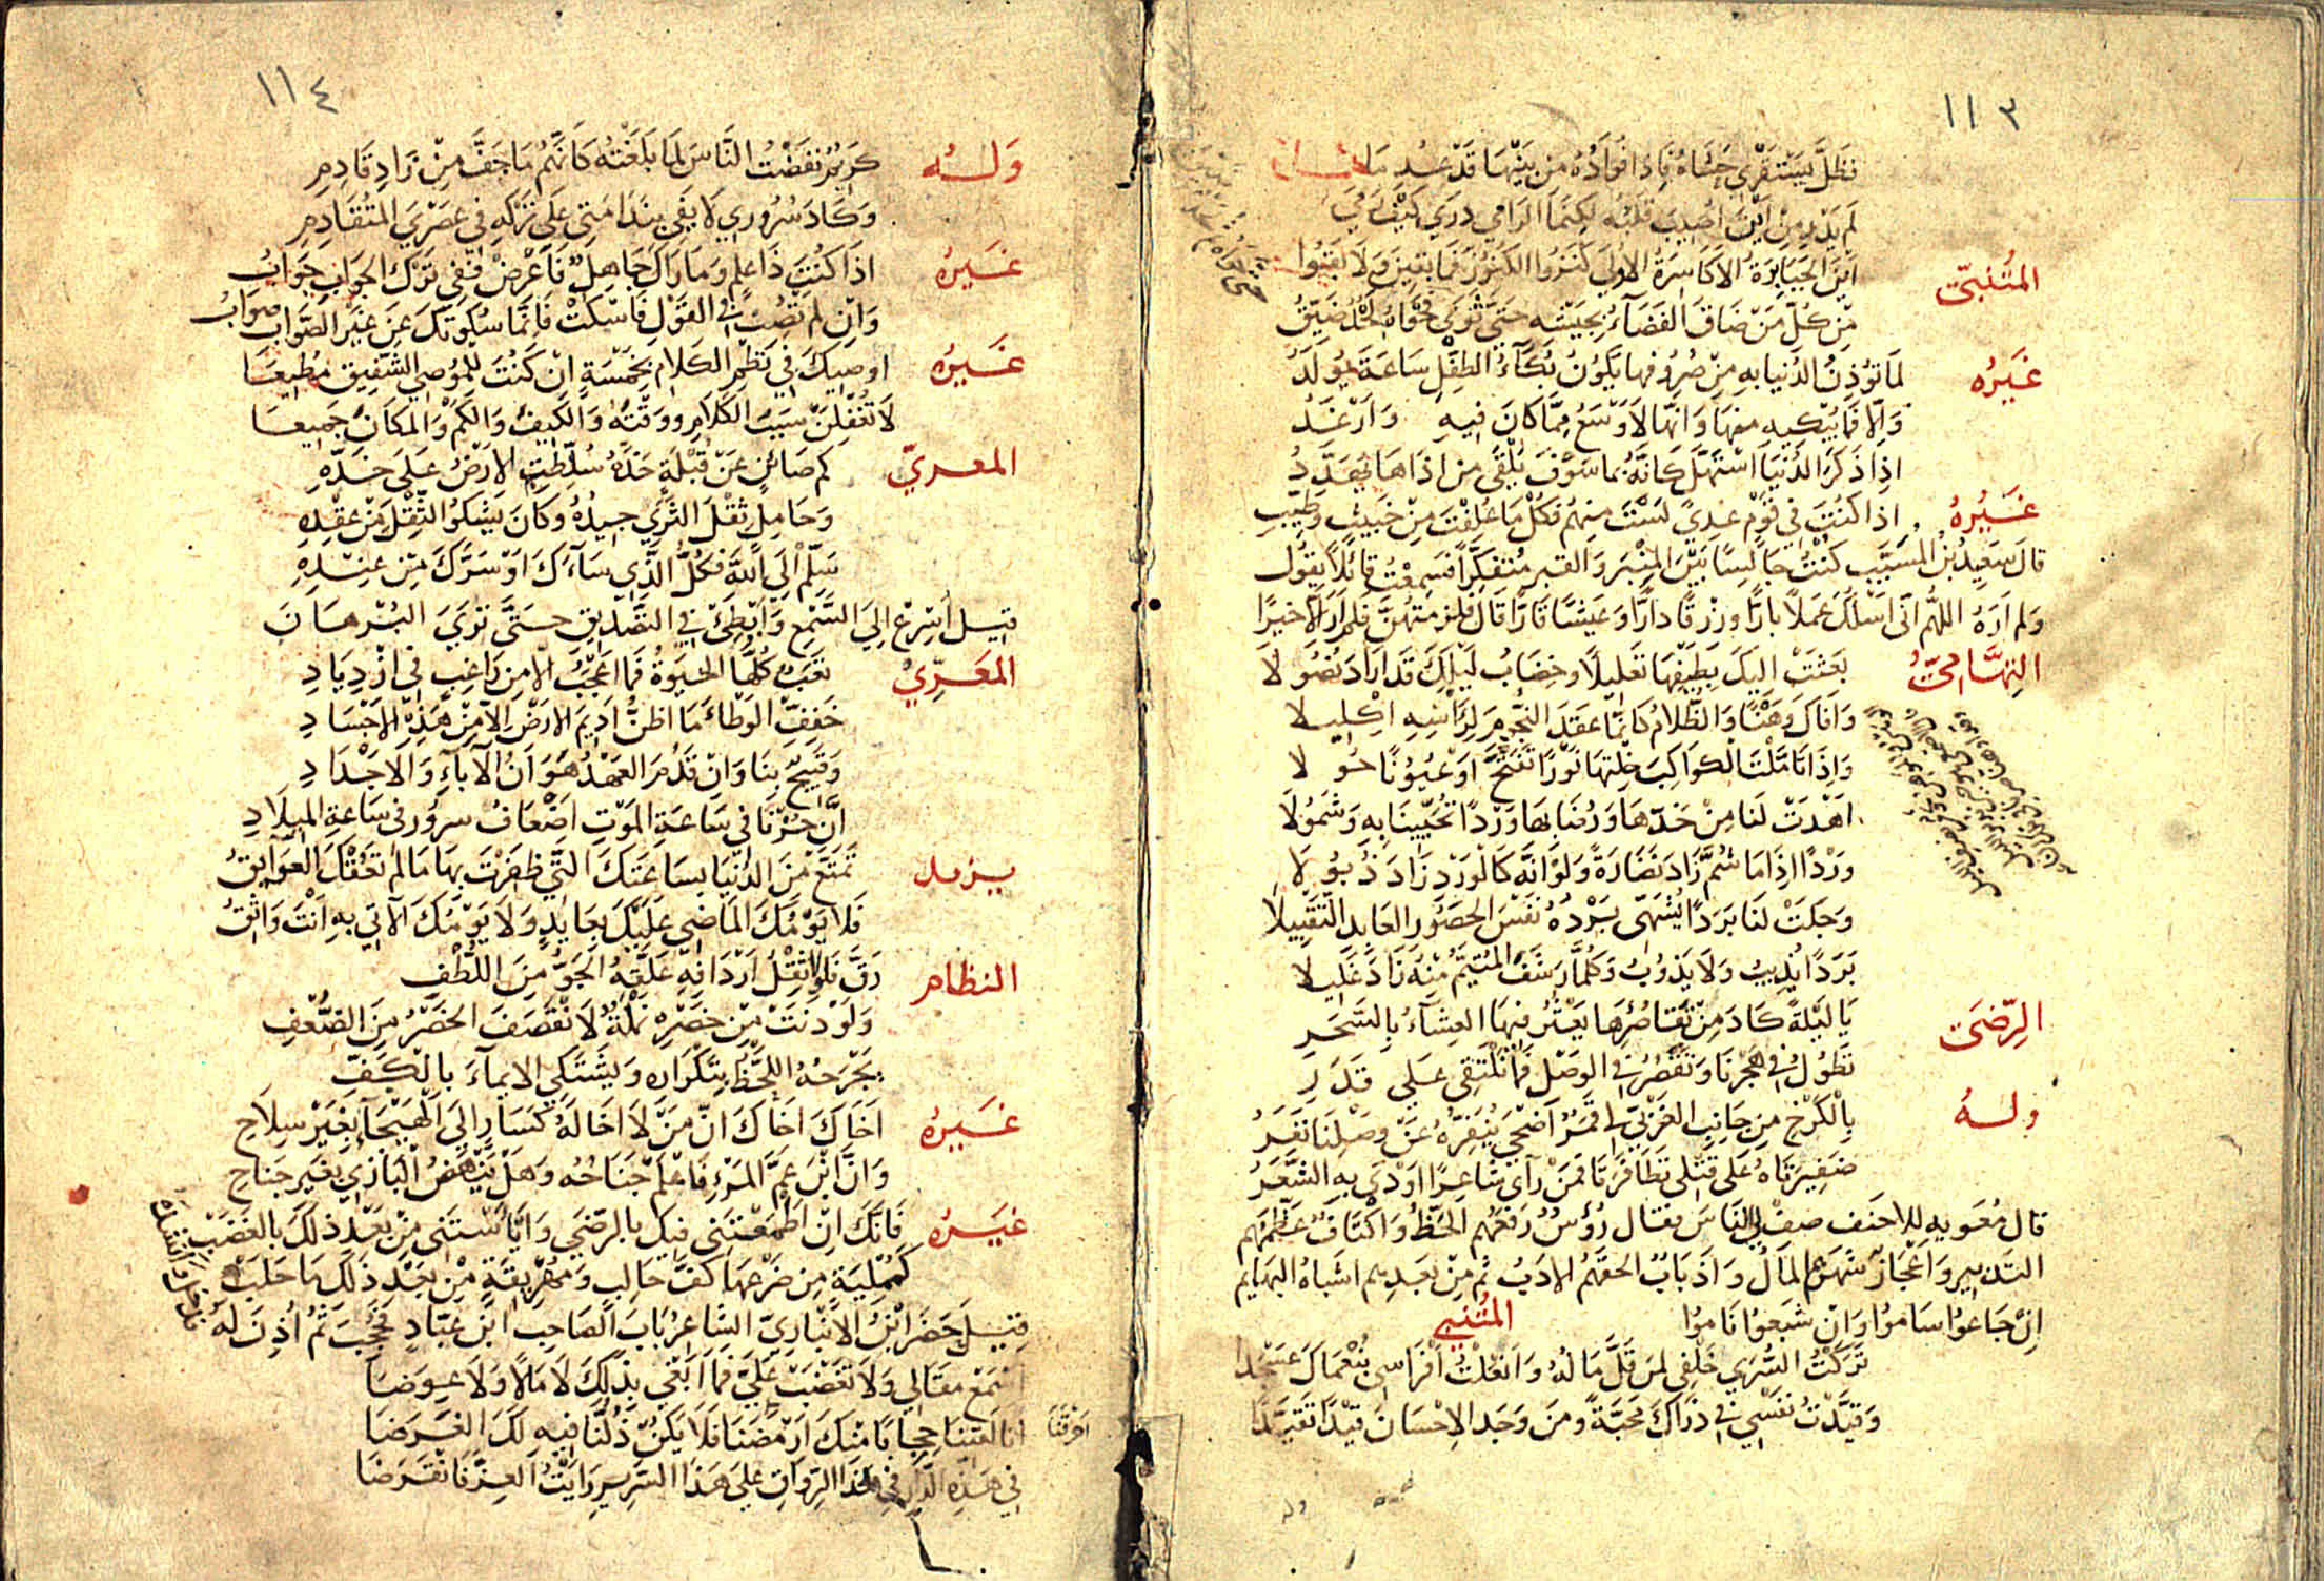 ١١٣
فظل يستقري حشاه فاذا فؤاده من بينها قد عدما
لم يدر من اين اصيب قلبه لكنما الرامي درى كيف رمى
المتنبي اين الجبابرة الاكاسرة الاولى كنزوا الكنوز فما بقين ولا بقوا
من كل من ضاق الفضاء بجيشه حتى ثوى فحواه لحد ضيق
غيره لما تؤذن الدنيا به من صروفها يكون بكاء الطفل ساعة يولد
والا فما يبكيه منها وانها لاوسع مما كان فيه وارغد
اذا ذكر الدنيا استهل كانه بما سوف يلقى من اذاها يهدد
غيره اذا كنت في قوم عدى لست منهم فكل ما علفت من خبيث وطيب
قال سعيد بن المسيب كنت جالسا بين المنبر والقبر متفكرا فسمعت قائلا يقول
ولم اره اللهم اني اسئلك عملا بارا ورزقا دارا وعيشا قارا قال فلزمتهن فلم ار الا خيرا
التهامي بعثت اليك بطيفها تعليلا وخضاب ليلك قد اراد نصولا
وافاك وهنا والظلام كانما عقد النجوم لراسه اكليلا
واذا تاملت الكواكب خلتها نورا تفتح او عيونا حولا
اهدت لنا من خدها ورضابها وردا تحيينا به وشمولا
وردا اذا ما شم زاد نضارة ولو انه كالورد زاد ذبولا
وجلت لنا بردا يشهى برده نفس الحصور العابد التقبيلا
بردا يذيب ولا يذوب وكلما رشف المتيم منه زاد غليلا
الرضي يا ليلة كاد من تقاصرها يعثر فيها العشاء بالسحر
تطول في هجرنا وتقصر في الوصل فما نلتقي على قدر
وله بالكرخ من جانب الغربي لي قمر اضحى ينفره عن وصلنا نفر
ضفيرتاه على قتلي تظافرتا فمن رآى شاعرا اودى به الشعر
قال معويه للاحنف صف لي الناس فقال رؤس رفعهم الحظ واكتاف عظمهم
التدبير واعجاز شهرهم المال واذباب الحقهم الادب ثم من بعدهم اشباه البهايم
ان جاعوا ساموا وان شبعوا ناموا المتنبي
تركت السرى خلفي لمن قل ماله وانعلت افراسي بنعماك عسجدا
وقيدت نفسي في ذراك محبة ومن وجد الاحسان قيدا تقيدا
١١٤
وله كريم نفضت الناس لما بلغته كانهم ما جف من زاد قادم
وكاد سروري لا يفي بندامتي على تركه في عصري المتقادم
غيره اذا كنت ذا علم وماراك جاهل فاعرض ففي ترك الجواب جواب
وان لم تصب في القول فاسكت فانما سكوتك عن غير الصواب صواب
غيره اوصيك في نظم الكلام بخمسة ان كنت للموصي الشفيق مطيعا
لا تغفلن سبب الكلام ووقته والكيف والكم والمكان جميعا
المعري كم صائن عن قبلة خده سلطت الارض على خده
وحامل ثقل الثرى جيده وكان يشكو الثقل من عقده
سلم الى الله فكل الذي ساءك او سرك من عنده
قيل اسرع الى السمع وابطئ في التصديق حتى ترى البرهان
المعري تعب كلها الحيوة فما اعجب الا من راغب في ازدياد
خفف الوطاء ما اظن اديم الارض الا من هذه الاجساد
وقبيح بنا وان قدم العهد هوان الآباء والاجداد
ان حزنا في ساعة الموت اضعاف سرور في ساعة الميلاد
تمتع من الدنيا بساعتك التي ظفرت بها ما لم تعقك العوايق
فلا يومك الماضي عليك بعايد ولا يومك الآتي به انت واثق
النظام رق فلو ثقل اردانه علقه الجو من اللطف
ولو دنت من خصره نملة لانقصف الخصر من الضعف
يجرحه اللحظ بتكراره ويشتكي الايماء بالكف
غيره اخاك اخاك ان من لا اخا له كسار الى الهيجاء بغير سلاح
وان ابن عم المرء فاعلم جناحه وهل ينهض البازي بغير جناح
غيره فانك ان اطمعتني فيك بالرضى وايأستني من بعد ذلك بالغضب
كممليه من ضرعها كف حالب ومهريقة من بعد ذلك ما حلب
قيل حضر ابن الانباري الشاعر باب الصاحب ابن عباد فحجب ثم أذن له
اسمع مقالي ولا تغضب علي فما ابغي بذلك لا مالا ولا عوضا
انا لقينا حجابا منك ارمضنا فلا يكن ذلنا فيه لك الغرضا
في هذه الدار في هذا الرواق على هذا السرير رايت العز فانقرضا